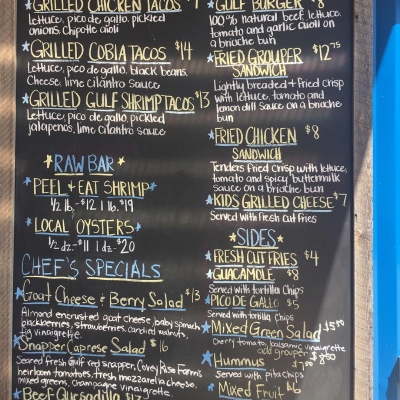 GRILLED CHICKEN TACOS
lettuce, pico de gallo, pickled
onions, Chipotle aioli
GRILLED COBIA TACOS $14
Lettuce, pico de gallo, black beans,
Cheese, lime cilantro sauce
GRILLED GULF SHRIMP TACOS $13
Lettuce, pico de gallo, pickled
jalapeños, lime cilantro sauce
RAW BAR
PEEL + EAT SHRIMP
1/2 lb. - $12 | lb. $19
LOCAL OYSTERS
1/2 dz - $11 | dz - $20
CHEF'S SPECIALS
Goat Cheese + Berry Salad $13
Almond encrusted goat cheese, baby spinach,
blackberries, strawberries, candied walnuts,
fig vinaigrette.
Snapper Caprese Salad $16
Seared fresh Gulf red snapper, Covey Rise Farm's
heirloom tomatoes, fresh mozzarella cheese,
mixed greens, champagne vinaigrette.
Beef Quesadilla
GULF BURGER $8
100% natural beef, lettuce,
tomato and garlic aioli on
a brioche bun
FRIED GROUPER $12.75
SANDWICH
Lightly breaded + fried crisp
with lettuce, tomato and
lemon dill sauce on a brioche
bun
FRIED CHICKEN $8
SANDWICH
Tenders fried crisp with lettuce,
tomato and spicy buttermilk
sauce on a brioche bun
KIDS GRILLED CHEESE $7
Served with fresh cut fries
SIDES
FRESH CUT FRIES $4
GUACAMOLE $8
Served with tortilla chips
PICO DE GALLO $5
Served with tortilla chips
Mixed Green Salad $5.50
Cherry tomato, balsamic vinaigrette
add grouper $8.50
Hummus
Served with pita chips
Mixed Fruit $6